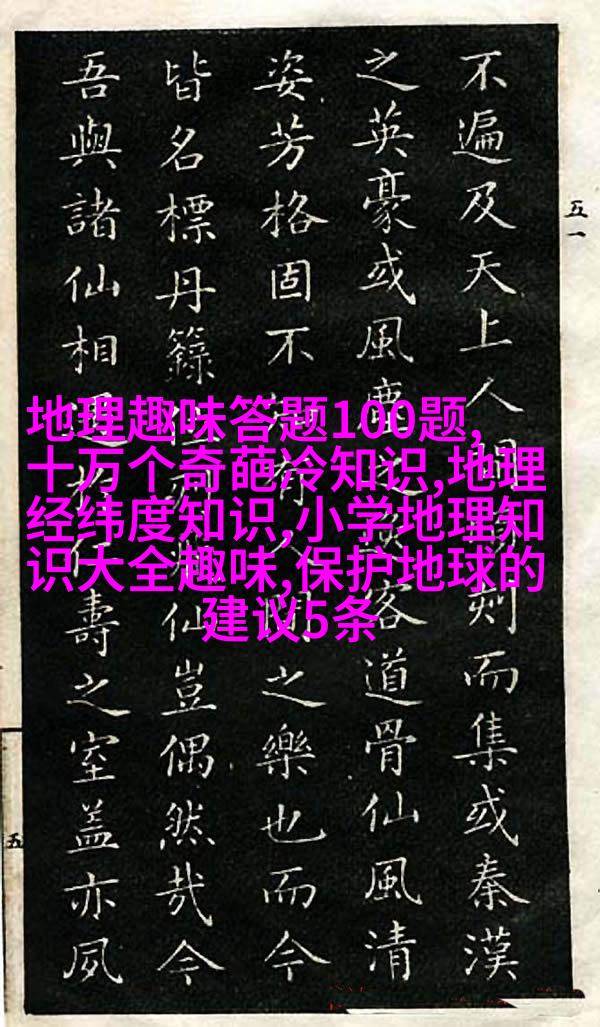 五一
不遍及天上人刻而集或秦漢
之英豪或風塵之客道骨仙風清
姿芳格固不有人間之樂也而今
皆名標丹籙仙豈偶然哉今
吾與諸仙相遇於仁壽之室蓋亦夙
五
地理趣味答题100题,
十万个奇葩冷知识,地理
经纬度知识,小学地理知
识大全趣味,保护地球的
建议5条